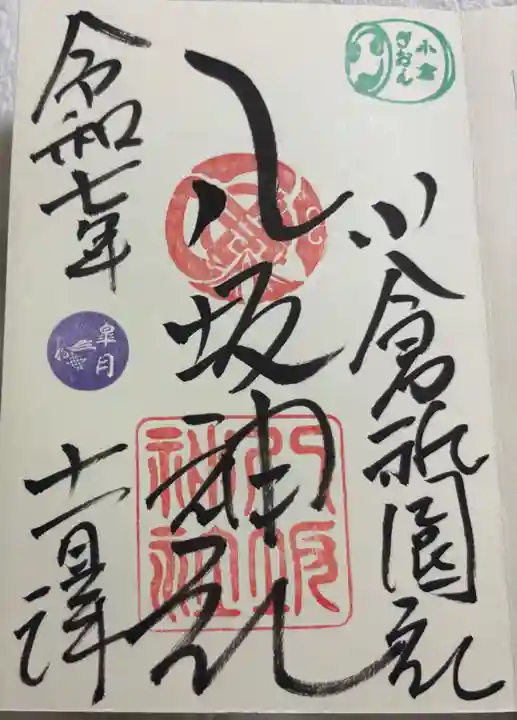 小倉
ぎおん
小倉祇園社
八坂神社
八坂
神社
令和七年
皐月
十一日拝